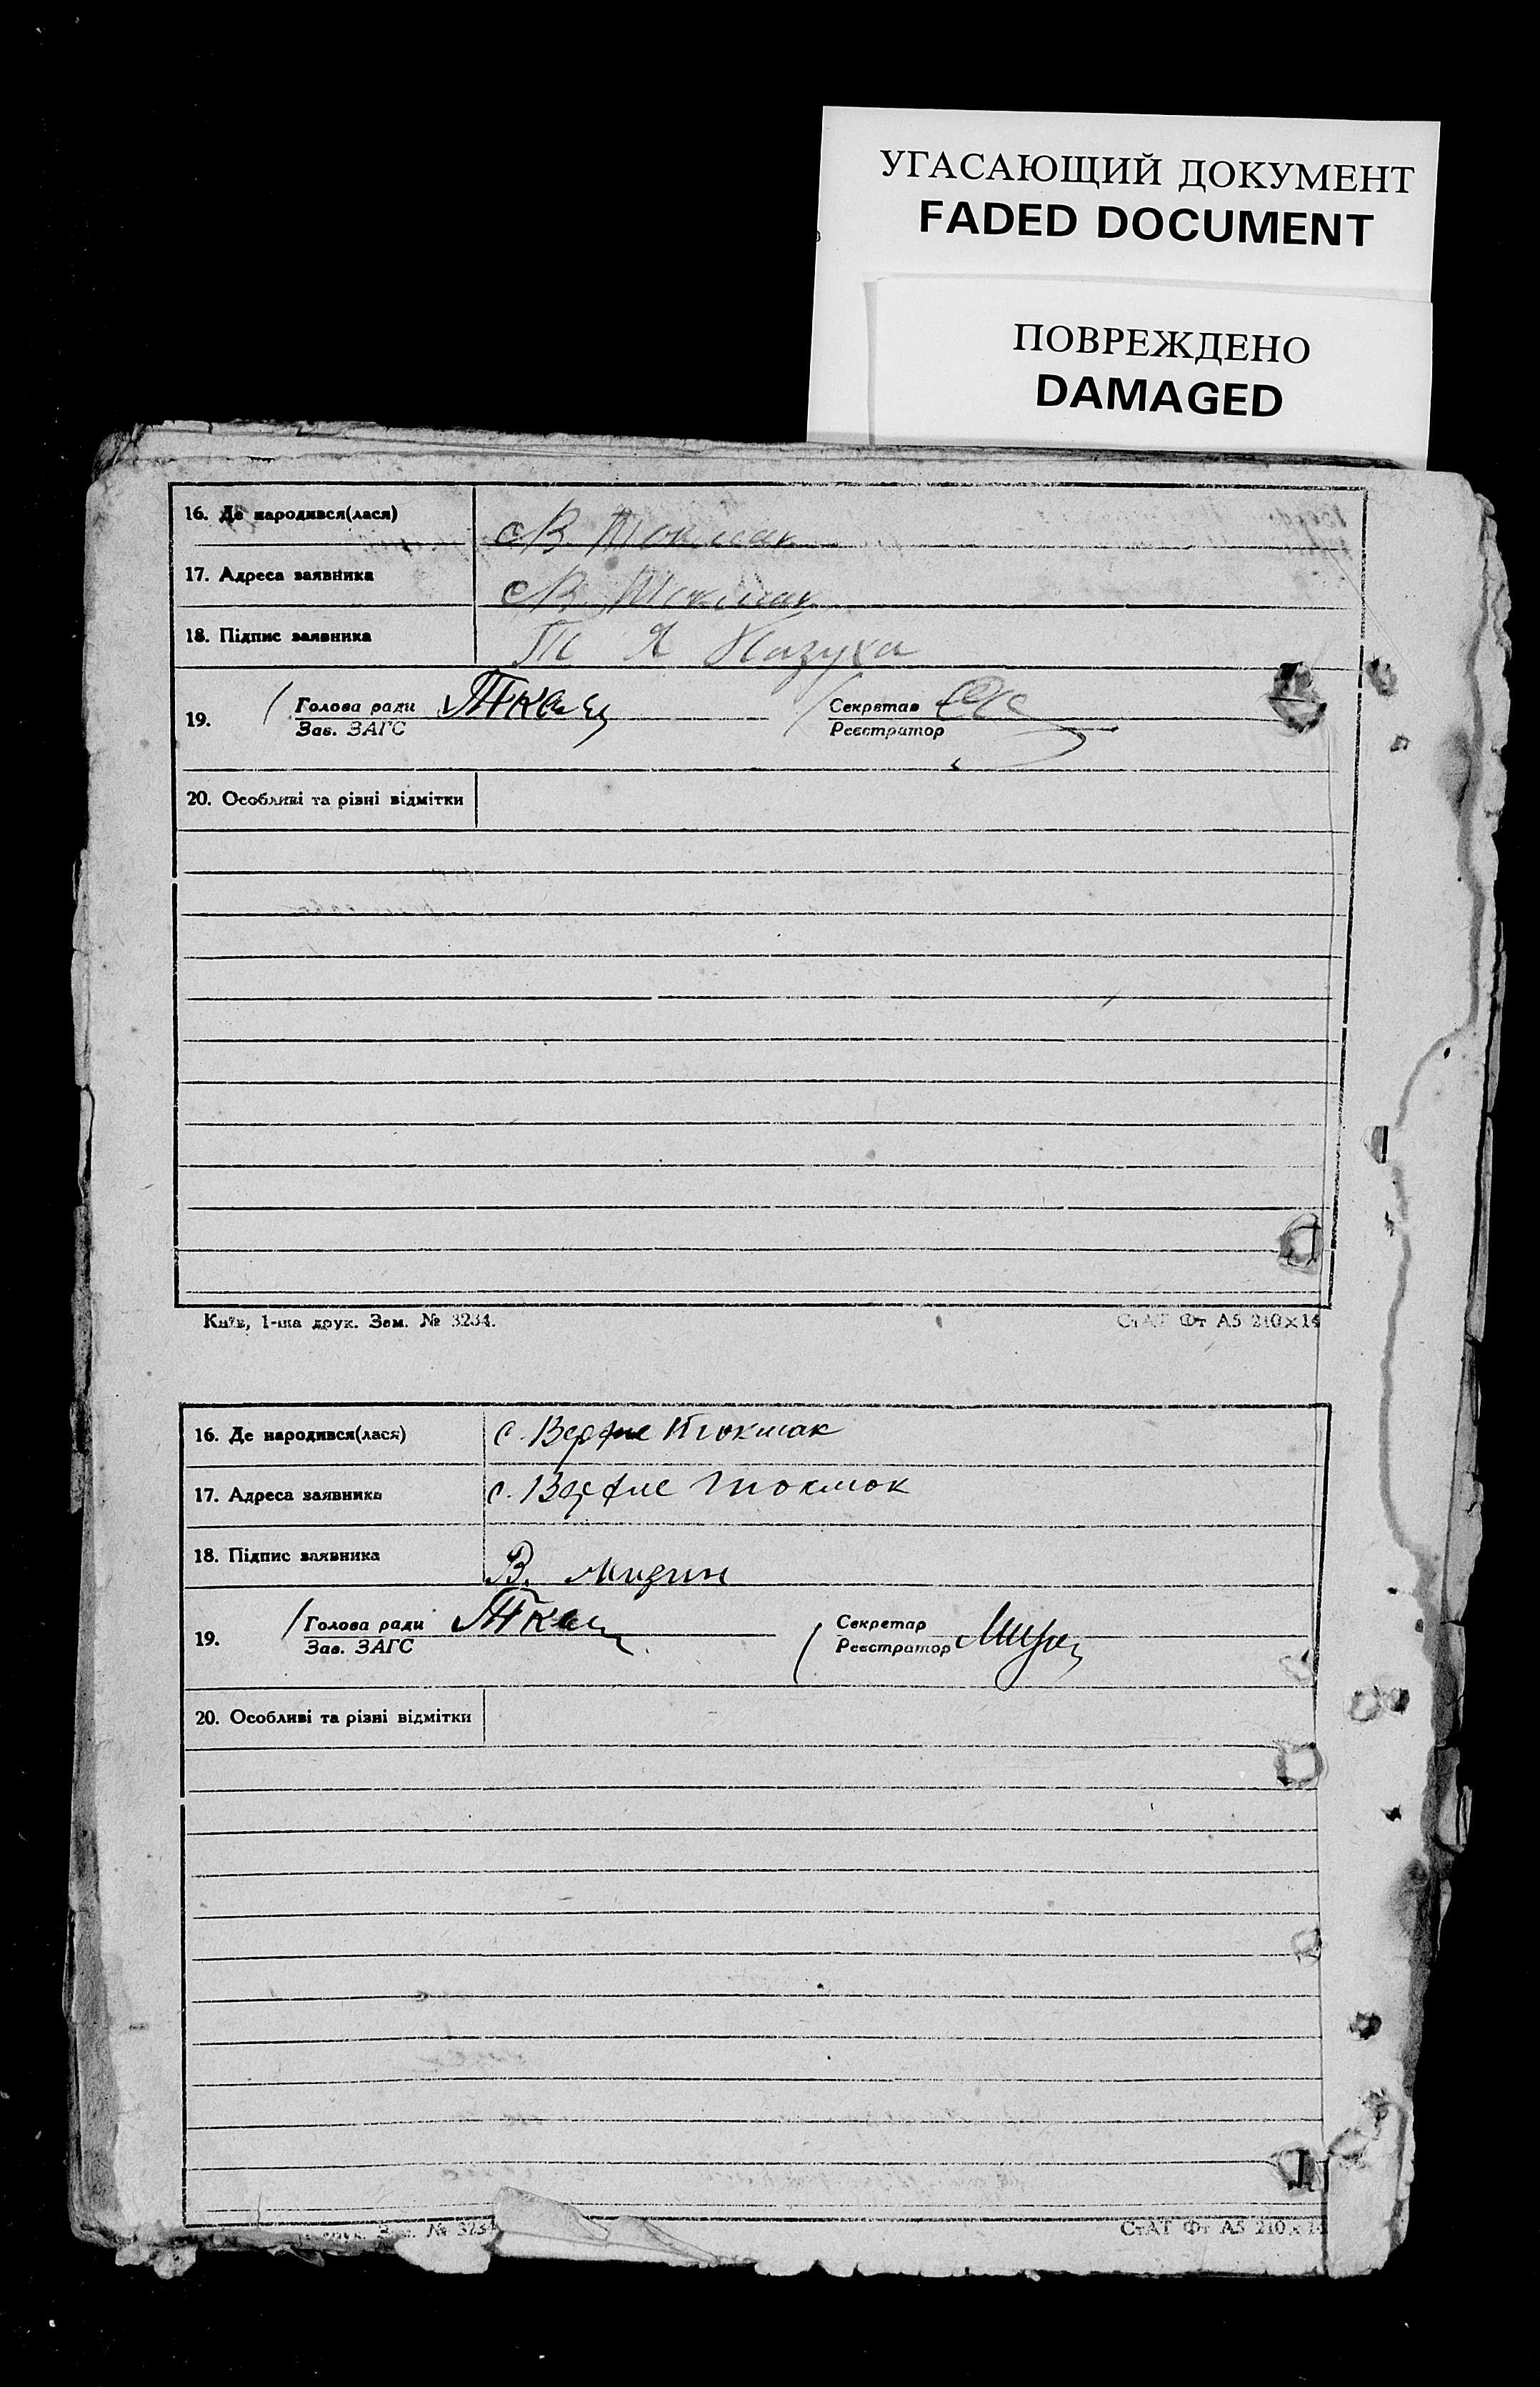 УГАСАЮЩИЙ ДОКУМЕНТ
FADED DOCUMENT
ПОВРЕЖДЕНО
DAMAGED
16. Де народився(лася) с В. Токмак
17. Адреса заявника с В. Токмак
18. Підпис заявника
19. Голова ради Секретар
Зав. ЗАГС Реєстратор
20. Особливі та різні відмітки
Київ, 1-ша друк. Зам. № 3234.
СтАТ Фт А5 210×14
16. Де народився(лася) с. Верфне Токмак
17. Адреса заявника с. Верфне Токмок
18. Підпис заявника В.
19. Голова ради Секретар
Зав. ЗАГС Реєстратор
20. Особливі та різні відмітки
друк. Зам. № 3234
СтАТ Фт А5 210×14